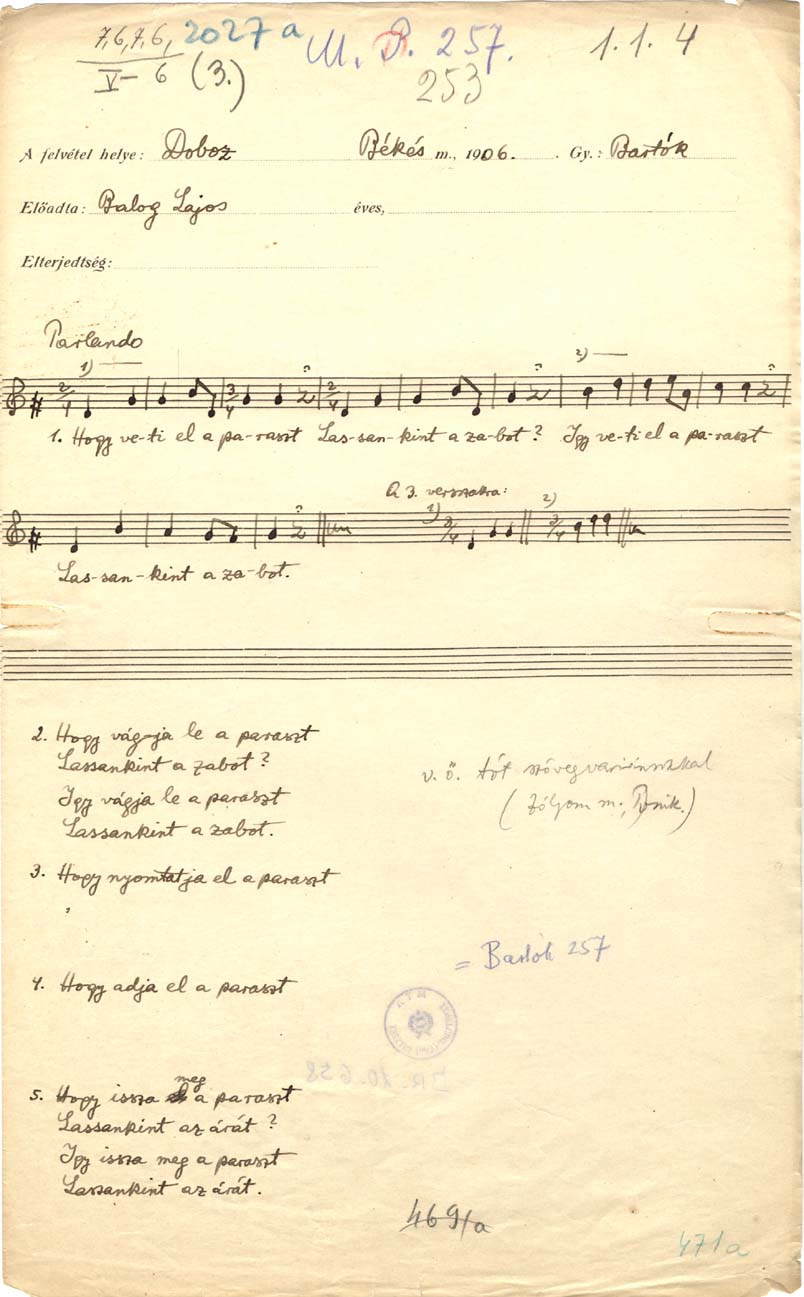 7,6,7,6, 2027a M. P. 257. 1.1.4
V–6 (3.) 253
A felvétel helye: Doboz Békés m., 1906. Gy.: Bartók
Előadta: Balog Lajos éves,
Elterjedtség:
Parlando
1) 2)
2/4 3/4 2/4
1. Hogy ve-ti el a pa-raszt Las-san-kint a za-bot? Így ve-ti el a pa-raszt
A 3. versszakra:
1) 3/4 2) 3/4
Las-san-kint a za-bot.
2. Hogy vágja le a paraszt
Lassankint a zabot?
Így vágja le a paraszt
Lassankint a zabot.
v. ö. tót szövegvariánsokkal
(Zólyom m., Ponik.)
3. Hogy nyomtatja el a paraszt
4. Hogy adja el a paraszt
= Bartók 257
5. Hogy issza meg a paraszt
Lassankint az árát?
Így issza meg a paraszt
Lassankint az árát.
469/a
471a